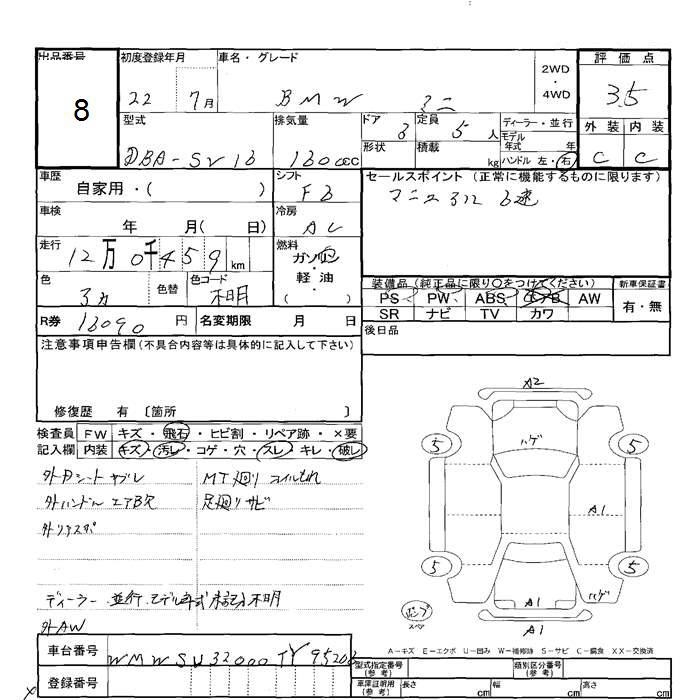 出品番号 初度登録年月 車名・グレード 2WD ・ 4WD 評価点
8 22 7月 BMW ミニ 3.5
型式 排気量 ドア 3 定員 5人 ディーラー・並行 外装 内装
モデル年式 年
DBA-SV16 1600cc 形状 積載 kg ハンドル 左・右 C C
車歴 自家用・( ) シフト F6 セールスポイント (正常に機能するものに限ります)
マニュアル 6速
車検 年 月( 日) 冷房 AC
走行 12万0千459km 燃料 ガソリン 軽油 ( )
色 色替 色コード 不明
装備品 (純正品に限り○をつけてください) 新車保証書
PS PW ABS エアB AW 有・無
SR ナビ TV カワ
R券 13090円 名変期限 月 日 後日品
注意事項申告欄(不具合内容等は具体的に記入して下さい)
修復歴 有 〔箇所 〕
検査員 FW キズ・飛石・ヒビ割・リペア跡・×要
記入欄 内装 キズ・汚レ・コゲ・穴・スレ・キレ・破レ
外Dシートヤブレ MT廻りオイルもれ
外ハンドルエアB欠 足廻りサビ
外リアスポ
ディーラー 並行、モデル年式 未記入不明
外AW
A2
5 ハゲ 5
A1
5 5
パンプ スペア A1 ハゲ
A1
A-キズ E-エクボ U-凹み W-補修跡 S-サビ C-腐食 XX-交換済
車台番号 WMWSU32000TY9520
登録番号
型式指定番号 (参考) 類別区分番号 (参考)
車庫証明用 (参考) 長さ cm 幅 cm 高さ cm